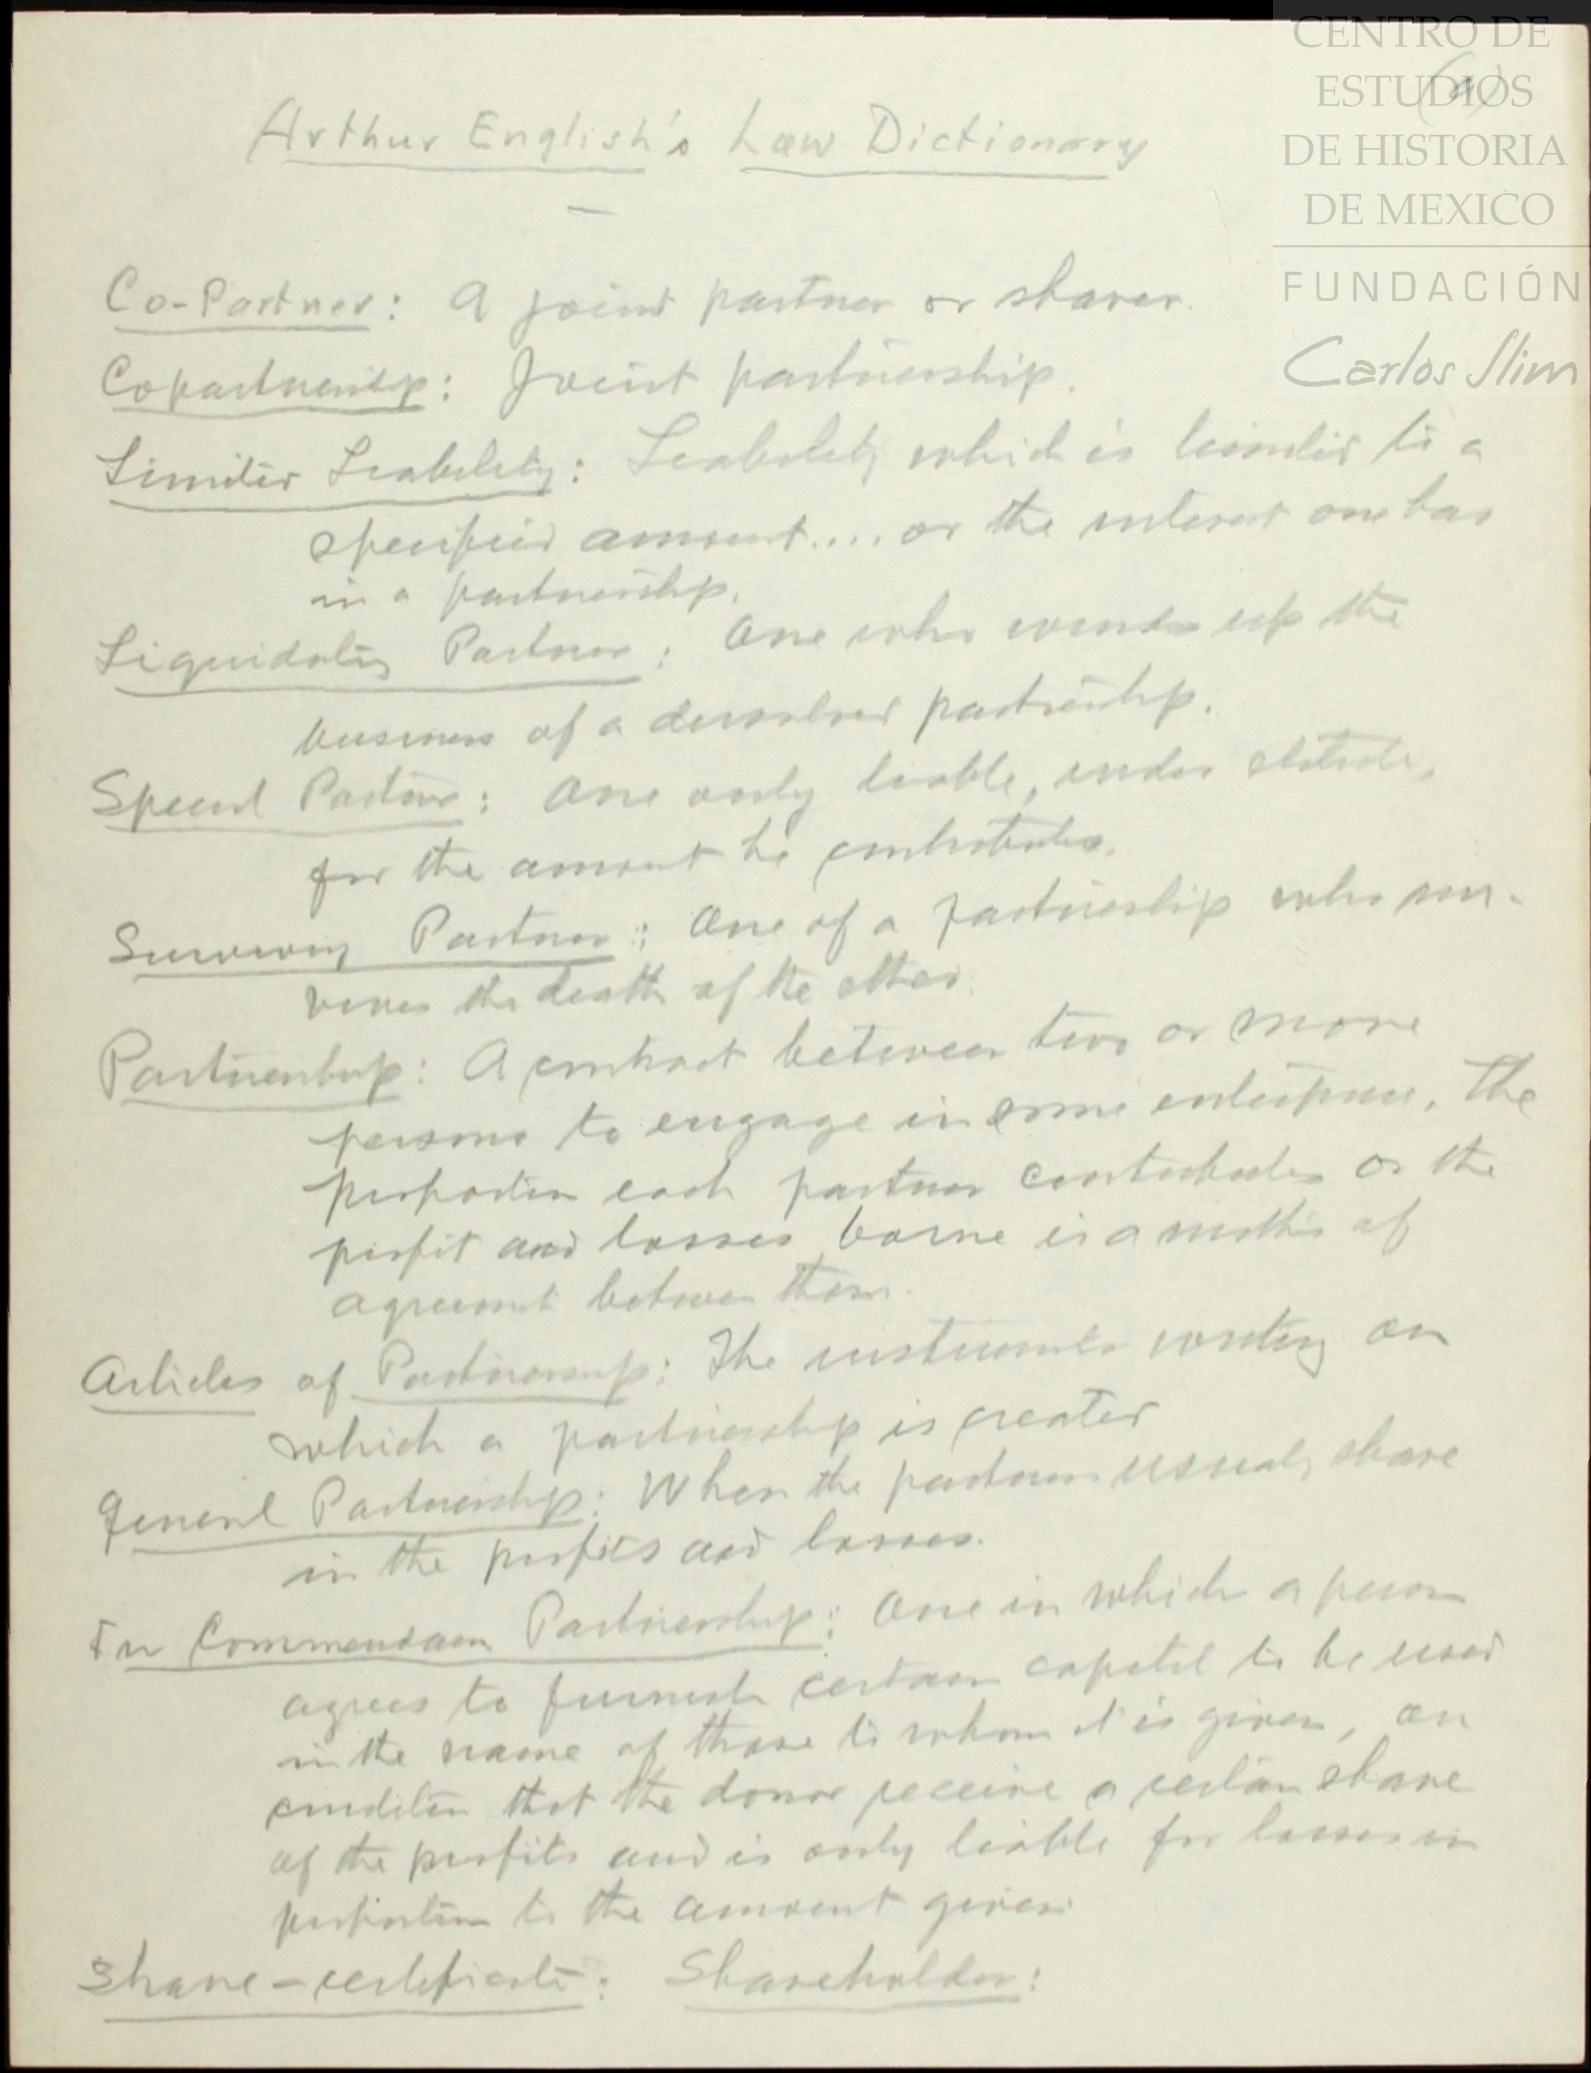 CENTRO DE
ESTUDIOS
DE HISTORIA
DE MEXICO
FUNDACIÓN
Carlos Slim
(a)
Arthur English's Law Dictionary
Co-Partner: A joint partner or sharer.
Copartnership: Joint partnership.
Limited Liability: Liability which is limited to a
specified amount.... or the interest one has
in a partnership.
Liquidating Partner: One who winds up the
business of a dissolved partnership.
Special Partner: One only liable, under statute,
for the amount he contributes.
Surviving Partner: One of a partnership who sur-
vives the death of the other.
Partnership: A contract between two or more
persons to engage in some enterprise. The
proportion each partner contributes or the
profit and losses borne is a matter of
agreement between them.
Articles of Partnership: The instruments writing on
which a partnership is created
General Partnership: When the partners usually share
in the profits and losses.
In Commendam Partnership: One in which a person
agrees to furnish certain capital to be used
in the name of those to whom it is given, on
condition that the donor receive a certain share
of the profits and is only liable for losses in
proportion to the amount given.
Share-certificate: Shareholder: